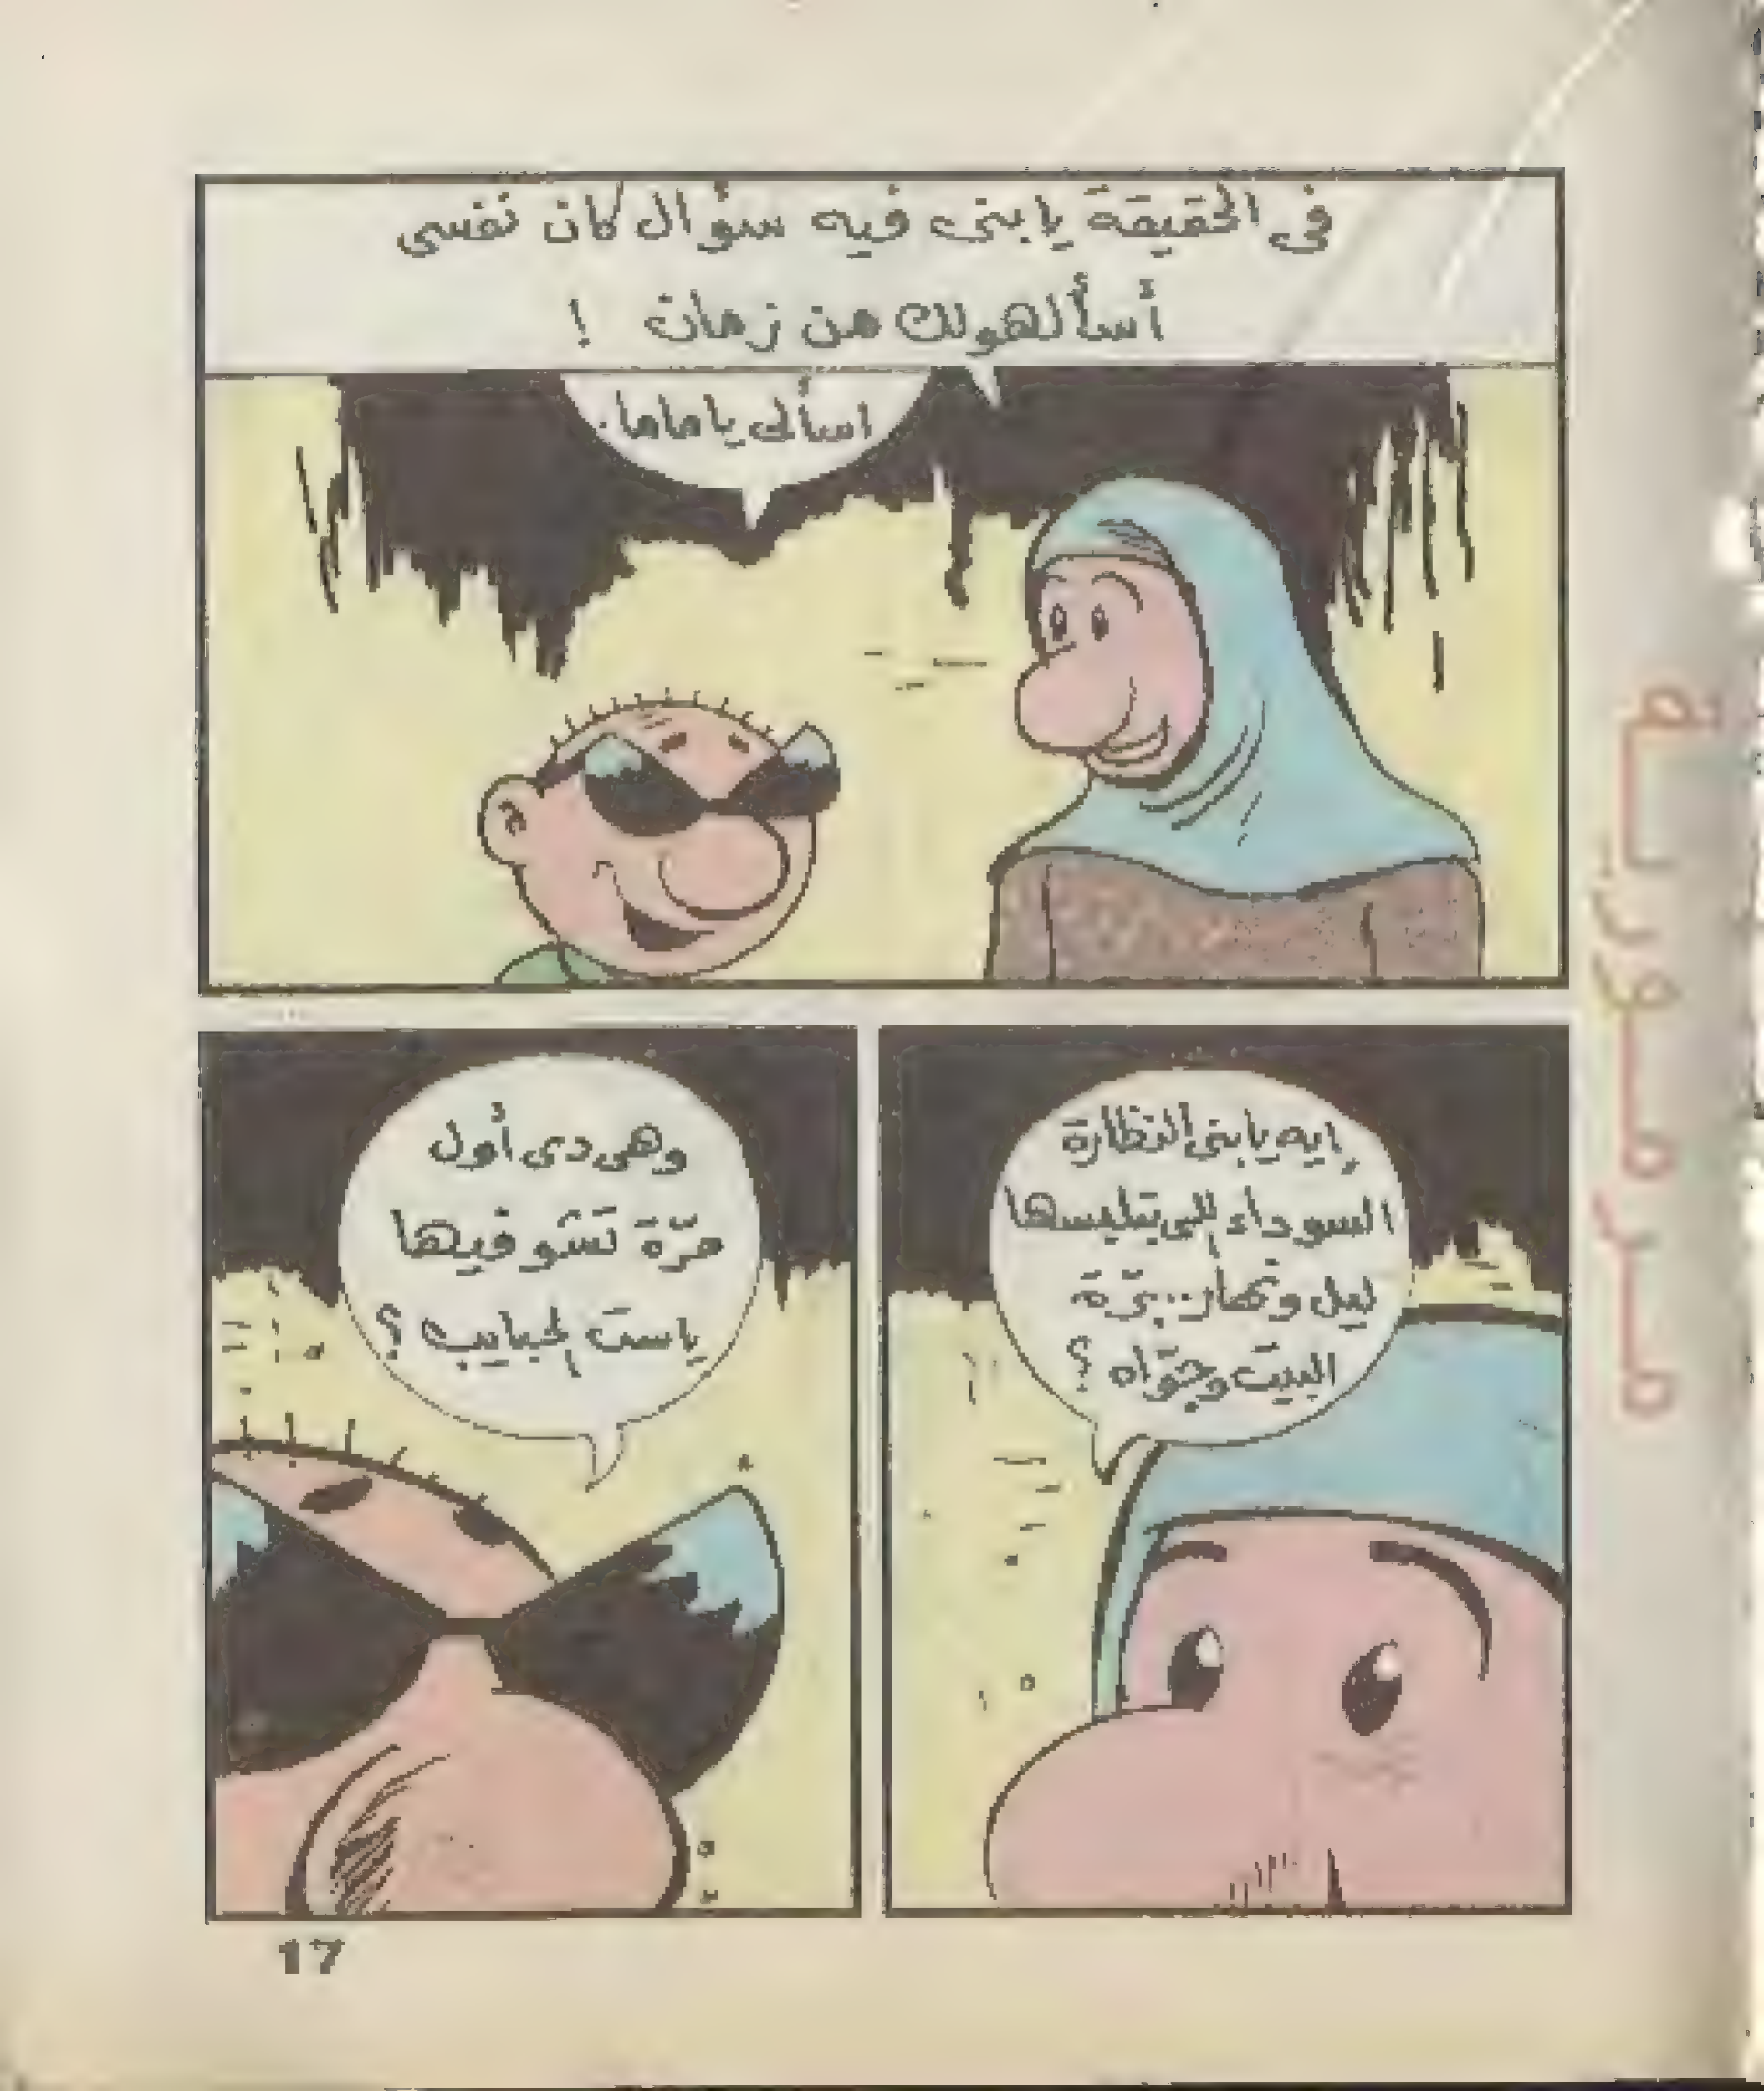 في الحقيقة يا بنى فيه سؤال كان نفسى
أسألهولك من زمان !
اسألى يا ماما.
إيه يا بنى النظارة
السوداء اللى بتلبسها
ليل ونهار.. برّة
البيت وجوّاه ؟
وهى دى أول
مرّة تشوفيها
يا ست الحبايب ؟
17